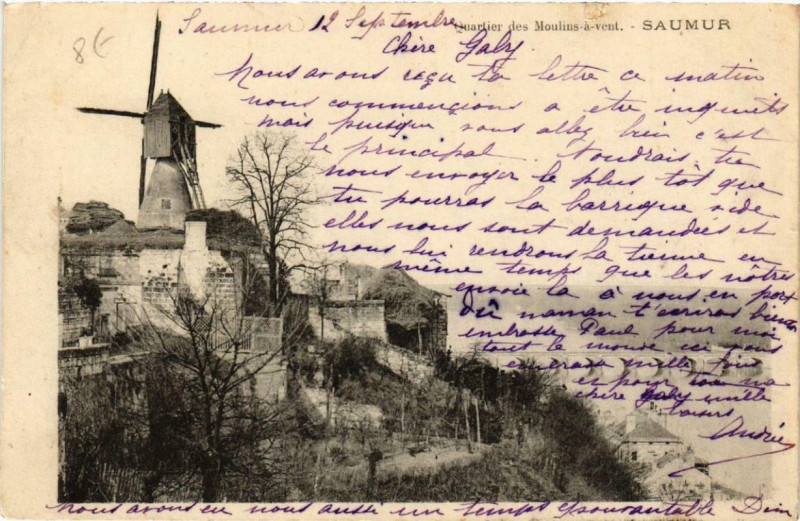 8€
Quartier des Moulins-à-vent. - SAUMUR
Saumur 12 Septembre
Chère Gaby.
Nous avons reçu ta lettre ce matin
nous commencions a être inquiets
mais puisque vous allez bien c'est
le principal. Voudrais tu
nous envoyer le plus tot que
tu pourras la barrique vide
elles nous sont demandées et
nous lui rendrons la tienne en
même temps que les nôtres
envoie la à nous en port
dû maman t'écriras bientot
embrasse Paul pour moi
tout le monde ici vous
embrasse mille fois
et pour toi ma
chère gaby mille
baisers
Andrée
nous avons eu nous aussi un temps épouvantable Dim